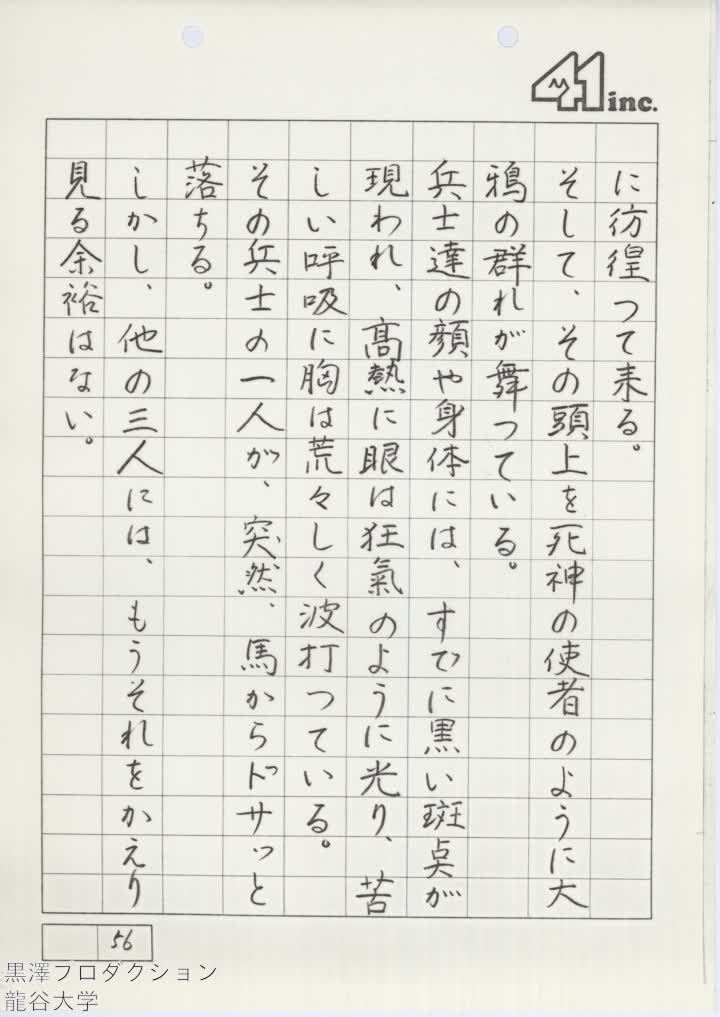 41 inc.
に彷徨つて来る。
そして、その頭上を死神の使者のように大
鴉の群れが舞つている。
兵士達の顔や身体には、すでに黒い斑点が
現われ、高熱に眼は狂氣のように光り、苦
しい呼吸に胸は荒々しく波打つている。
その兵士の一人が、突然、馬からドサッと
落ちる。
しかし、他の三人には、もうそれをかえり
見る余裕はない。
56
黒澤プロダクション
龍谷大学